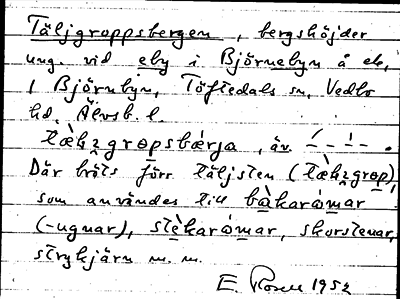 Täljgroppsbergen, bergshöjder
ung. vid eby i Björnebyn å ek,
1 Björnbyn, Töftedals sn, Vedbo
hd. Älvsb. l.
tæ̀ḷzgrǫpsbærja, äv.
Där bröts förr täljsten (tæ̀ḷzgrǫp)
som användes till bàkarómar
(-ugnar), stèkarómar, skorstenar,
strykjärn m. m.
E Rosell 1952